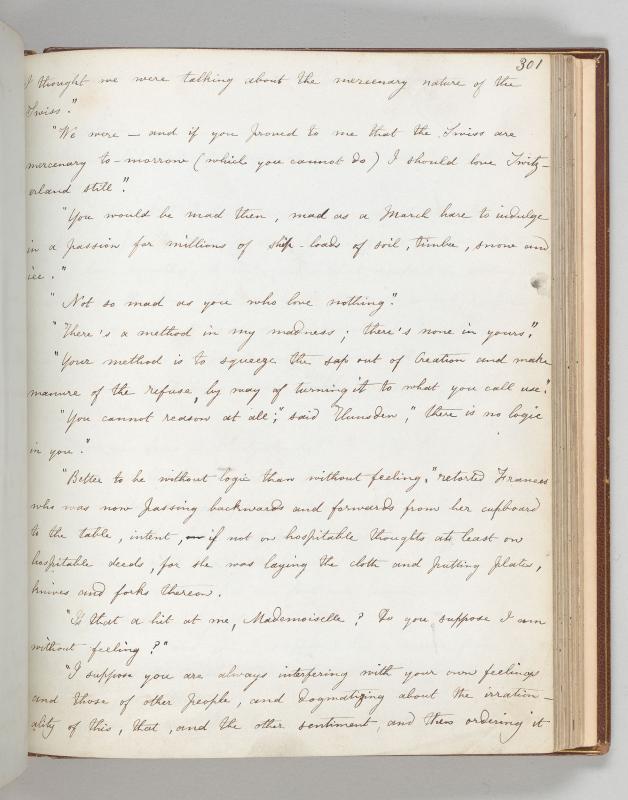 301
I thought we were talking about the mercenary nature of the
Swiss."
"We were — and if you proved to me that the Swiss are
mercenary to-morrow (which you cannot do) I should love Switz-
erland still."
"You would be mad then, mad as a March hare to indulge
in a passion for millions of ship-loads of soil, timber, snow and
ice."
"Not so mad as you who love nothing."
"There's a method in my madness; there's none in yours."
"Your method is to squeeze the sap out of Creation and make
manure of the refuse, by way of turning it to what you call use."
"You cannot reason at all;" said Hunsden, "there is no logic
in you."
"Better to be without logic than without feeling," retorted Frances
who was now passing backwards and forwards from her cupboard
to the table, intent, if not on hospitable thoughts at least on
hospitable deeds, for she was laying the cloth and putting plates,
knives and forks thereon.
"Is that a hit at me, Mademoiselle? Do you suppose I am
without feeling?"
"I suppose you are always interfering with your own feelings
and those of other people, and dogmatizing about the irration-
ality of this, that, and the other sentiment, and then ordering it